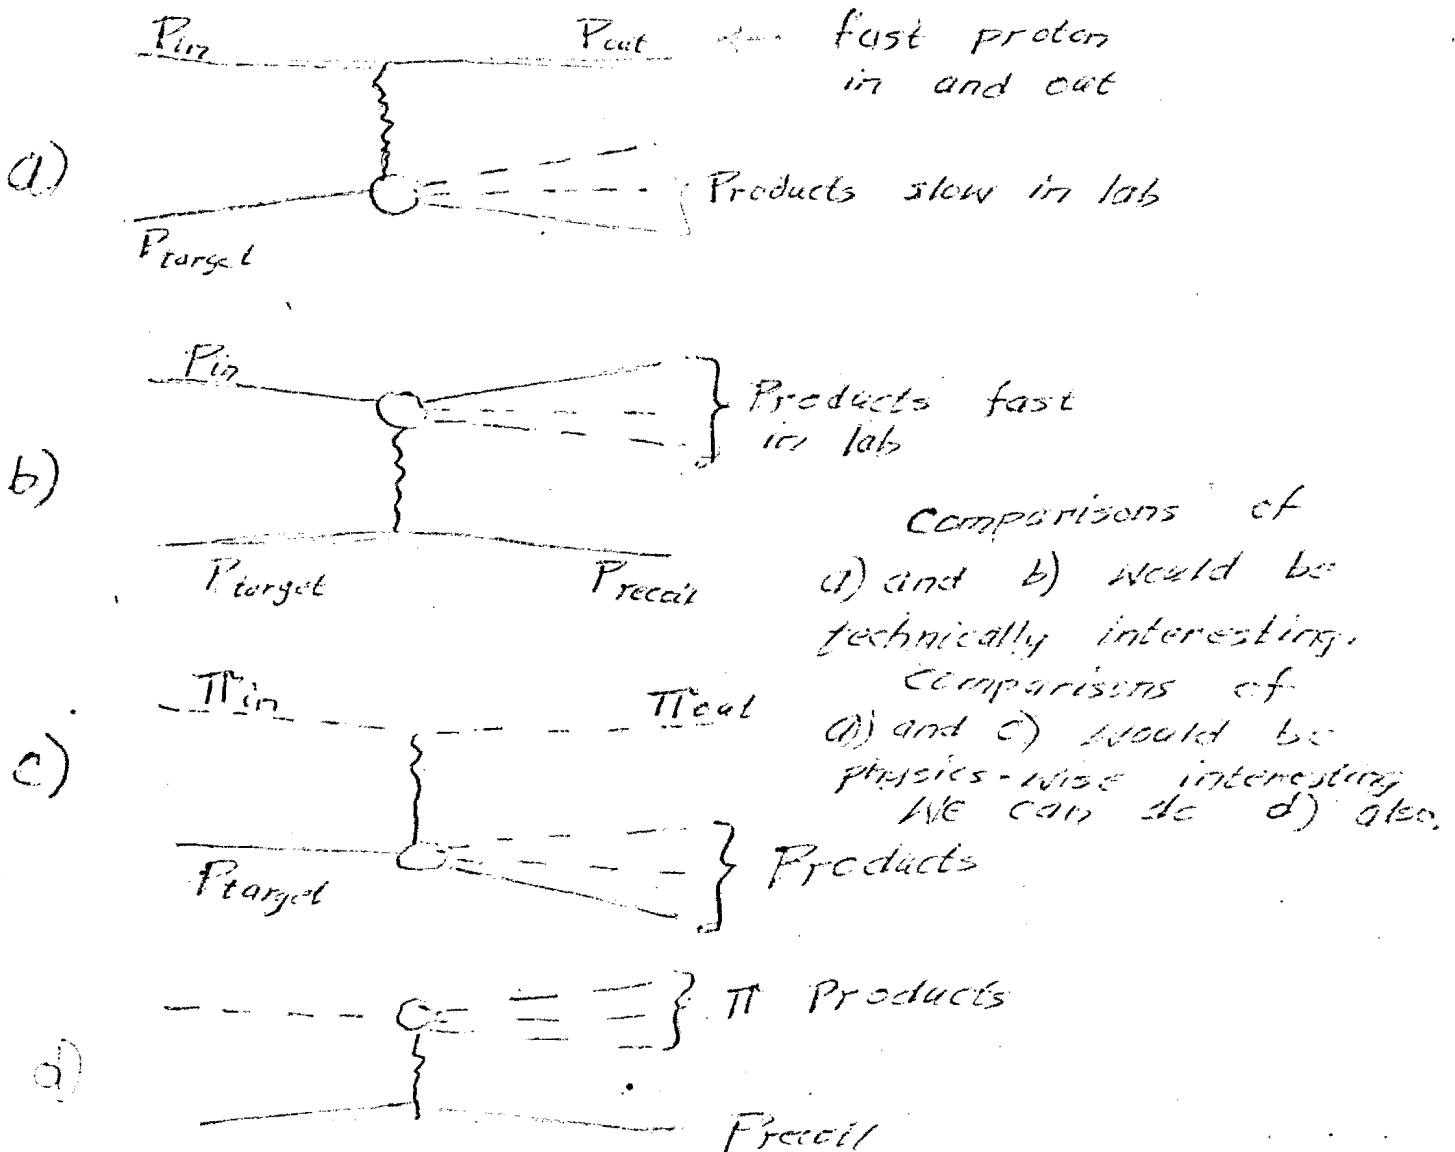 Pin Pout ← fast proton
in and out
a)
Products slow in lab
Ptarget
Pin
Products fast
in lab
b)
Ptarget Precoil
Comparisons of
a) and b) would be
technically interesting.
Comparisons of
a) and c) would be
physics-wise interesting
We can do d) also.
πin πout
c)
Ptarget
Products
π Products
d)
Precoil